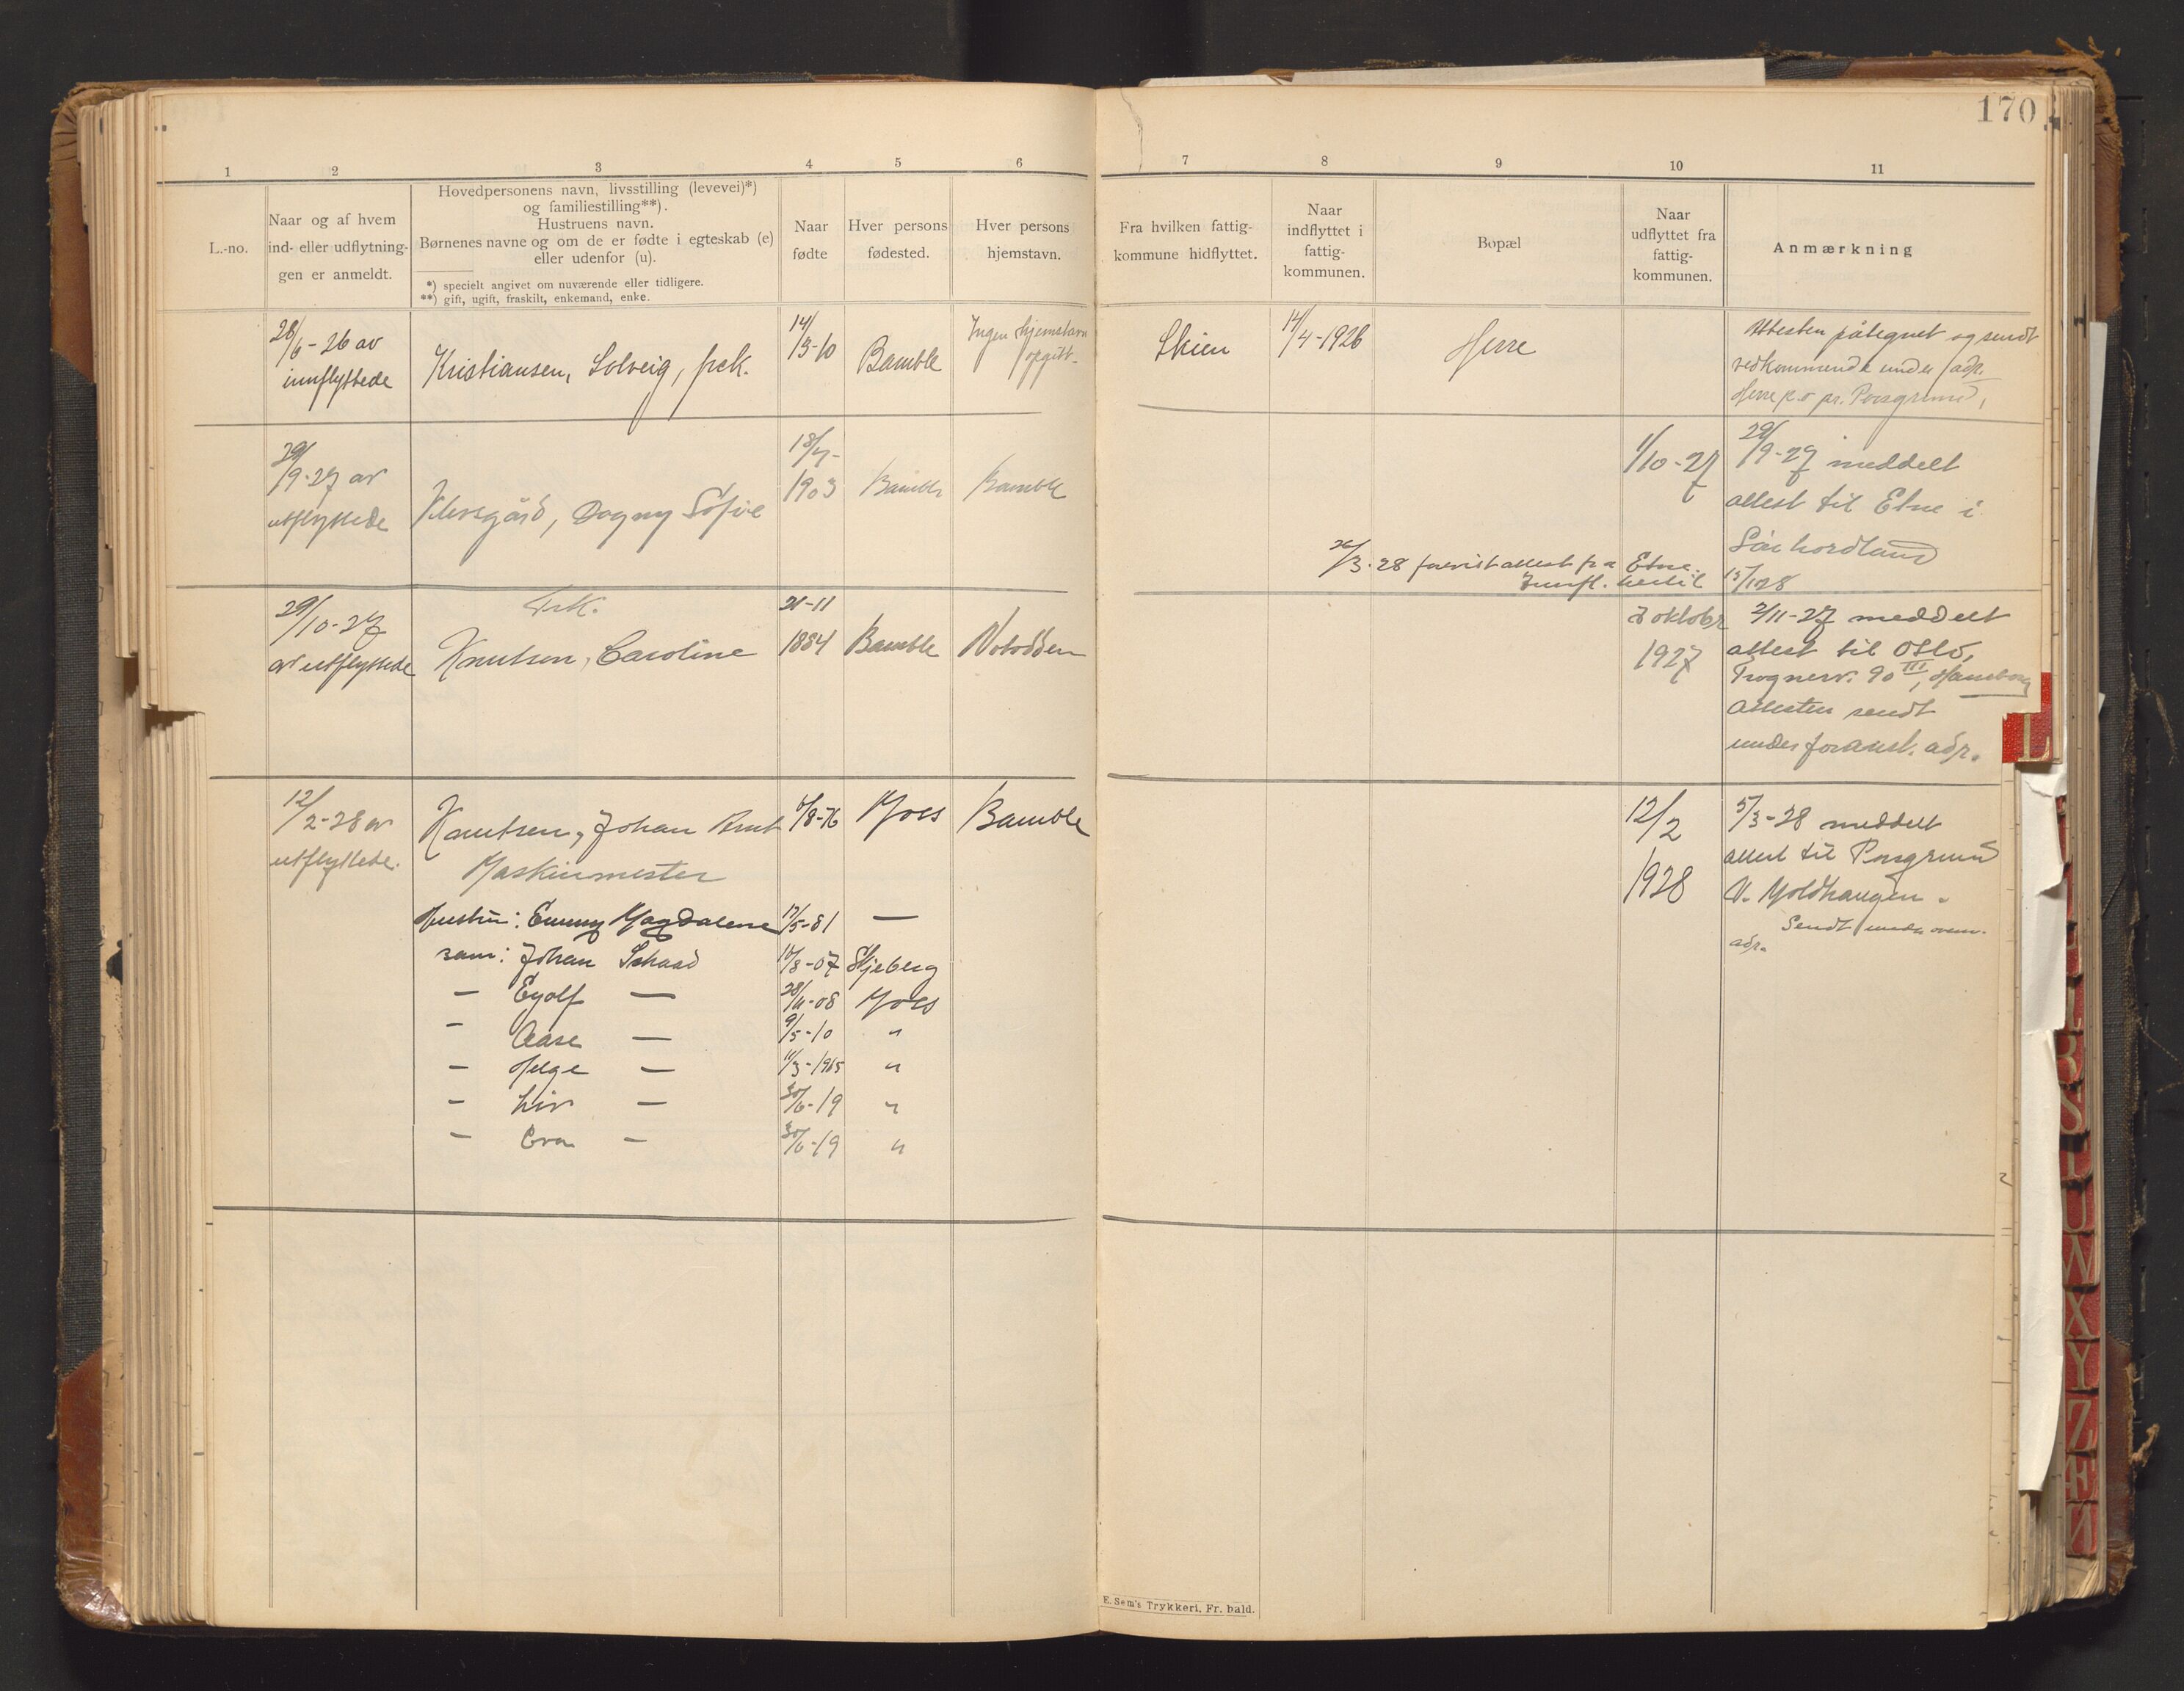 170
1 2 3 4 5 6 7 8 9 10 11
L.-no.
Naar og af hvem
ind- eller udflytnin-
gen er anmeldt.
Hovedpersonens navn, livsstilling (levevei)*)
og familiestilling**).
Hustruens navn.
Børnenes navne og om de er fødte i egteskab (e)
eller udenfor (u).
*) specielt angivet om nuværende eller tidligere.
**) gift, ugift, fraskilt, enkemand, enke.
Naar
fødte
Hver persons
fødested.
Hver persons
hjemstavn.
Fra hvilken fattig-
kommune hidflyttet.
Naar
indflyttet i
fattig-
kommunen.
Bopæl
Naar
udflyttet fra
fattig-
kommunen.
Anmærkning
28/6-26 av
innflyttede
Kristiansen, Solveig, frk.
14/3-10
Bamble
Ingen hjemstavn
opgitt.
Skien
14/4-1926
Herre
Attesten påtegnet og sendt
vedkommende under adr.
Herre p.o pr. Porsgrund,
29/9-27 av
utflyttede
Dagny Sofie
18/7-
1903
Bamble
Bamble
1/10-27
29/9-27 meddelt
attest til Etne i
Sønhordland
26/3-28 attest fra Etne.
Innfl. hertil 15/1 28
29/10-27
av utflyttede
Frk.
Knutsen, Caroline
21-11
1884
Bamble
Notodden
oktober
1927
2/11-27 meddelt
attest til Oslo,
Frognerv. 90 III,
Attesten sendt
under foranst. adr.
12/2-28 av
utflyttede.
Knutsen, Johan
Maskinmester
6/8-76
Moss
Bamble
12/2
1928
5/3-28 meddelt
attest til Porsgrund
V. Moldhaugen.
Sendt under ovenn.
adr.
Hustru: Emmy Magdalene 17/5-81 —
Johan Schaad /8-07 Skjeberg
— Eyolf — 28/11-08 Moss
- Aase — 9/5-10 "
- Helge — 11/3-1915 "
- Liv — 30/6-19 "
- Eva — 30/6-19 "
E. Sem's Trykkeri, Fr. hald.
L
S
T
U
W
X
Y
Z
Æ